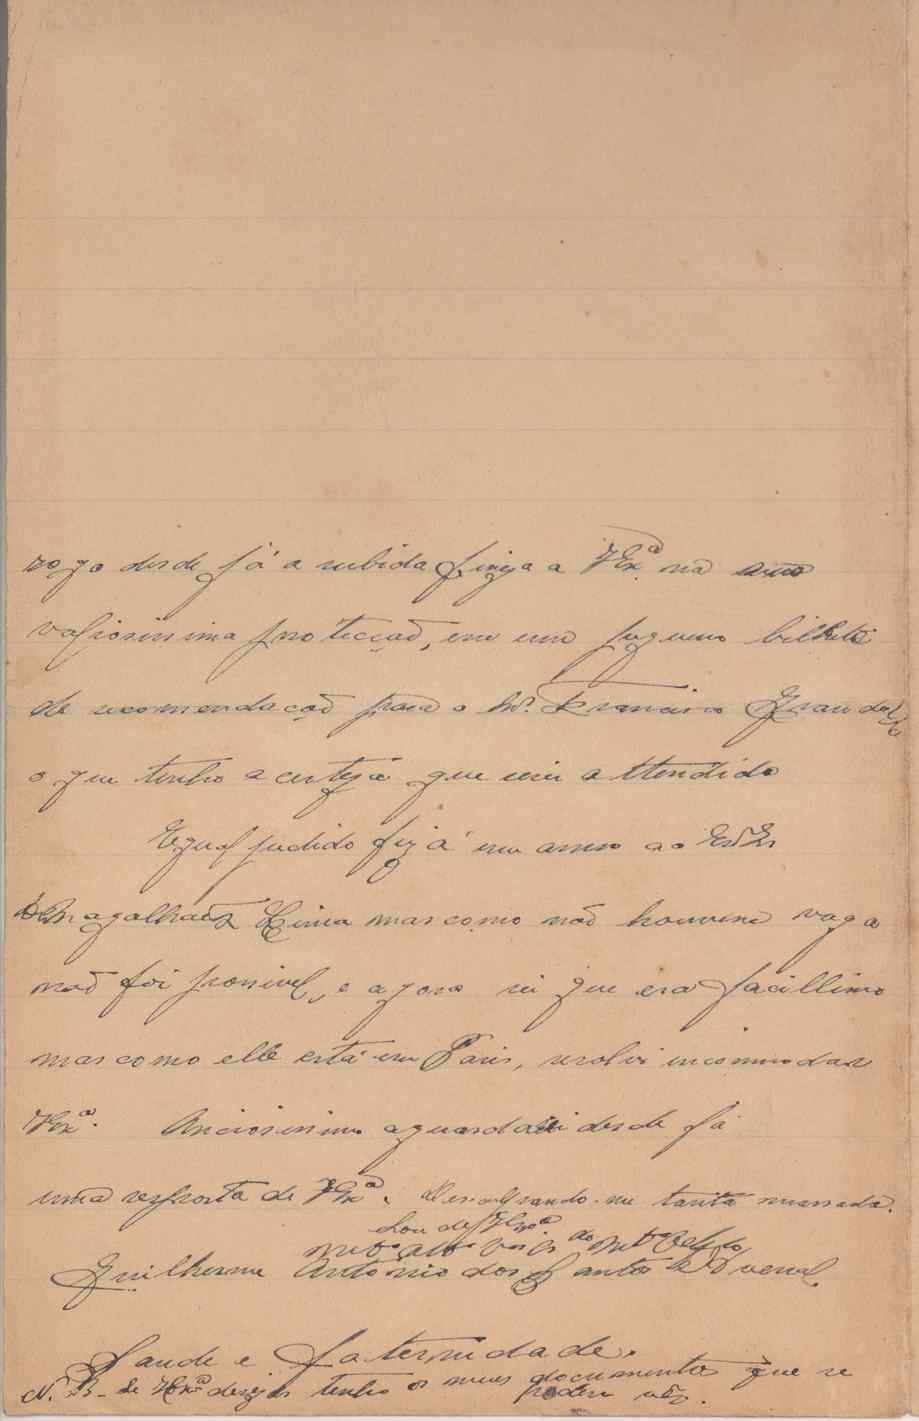 rogo desde já a subida fineza a VExª na sua
valiosissima protecçaõ, em um pequeno bilhete
de recomendaçaõ para o Snr. Francisco Grandella
o que tenho a certeza que serei attendido
Egual pedido fiz á um anno ao
Magalhaẽs Lima mas como naõ houvesse vaga
naõ foi possivel, e agora sei que era facillimo
mas como elle está em Paris, resolvi incommodar
VExª. Anciosissimo aguardarei desde já
uma resposta de VExª. Desculpando-me tanta massada.
Sou de
Guilherme Antonio dos Santos
Saude e Faternidade.
N. B. - Se VExª desejar tenho os meus documentos que se
podem vêr.